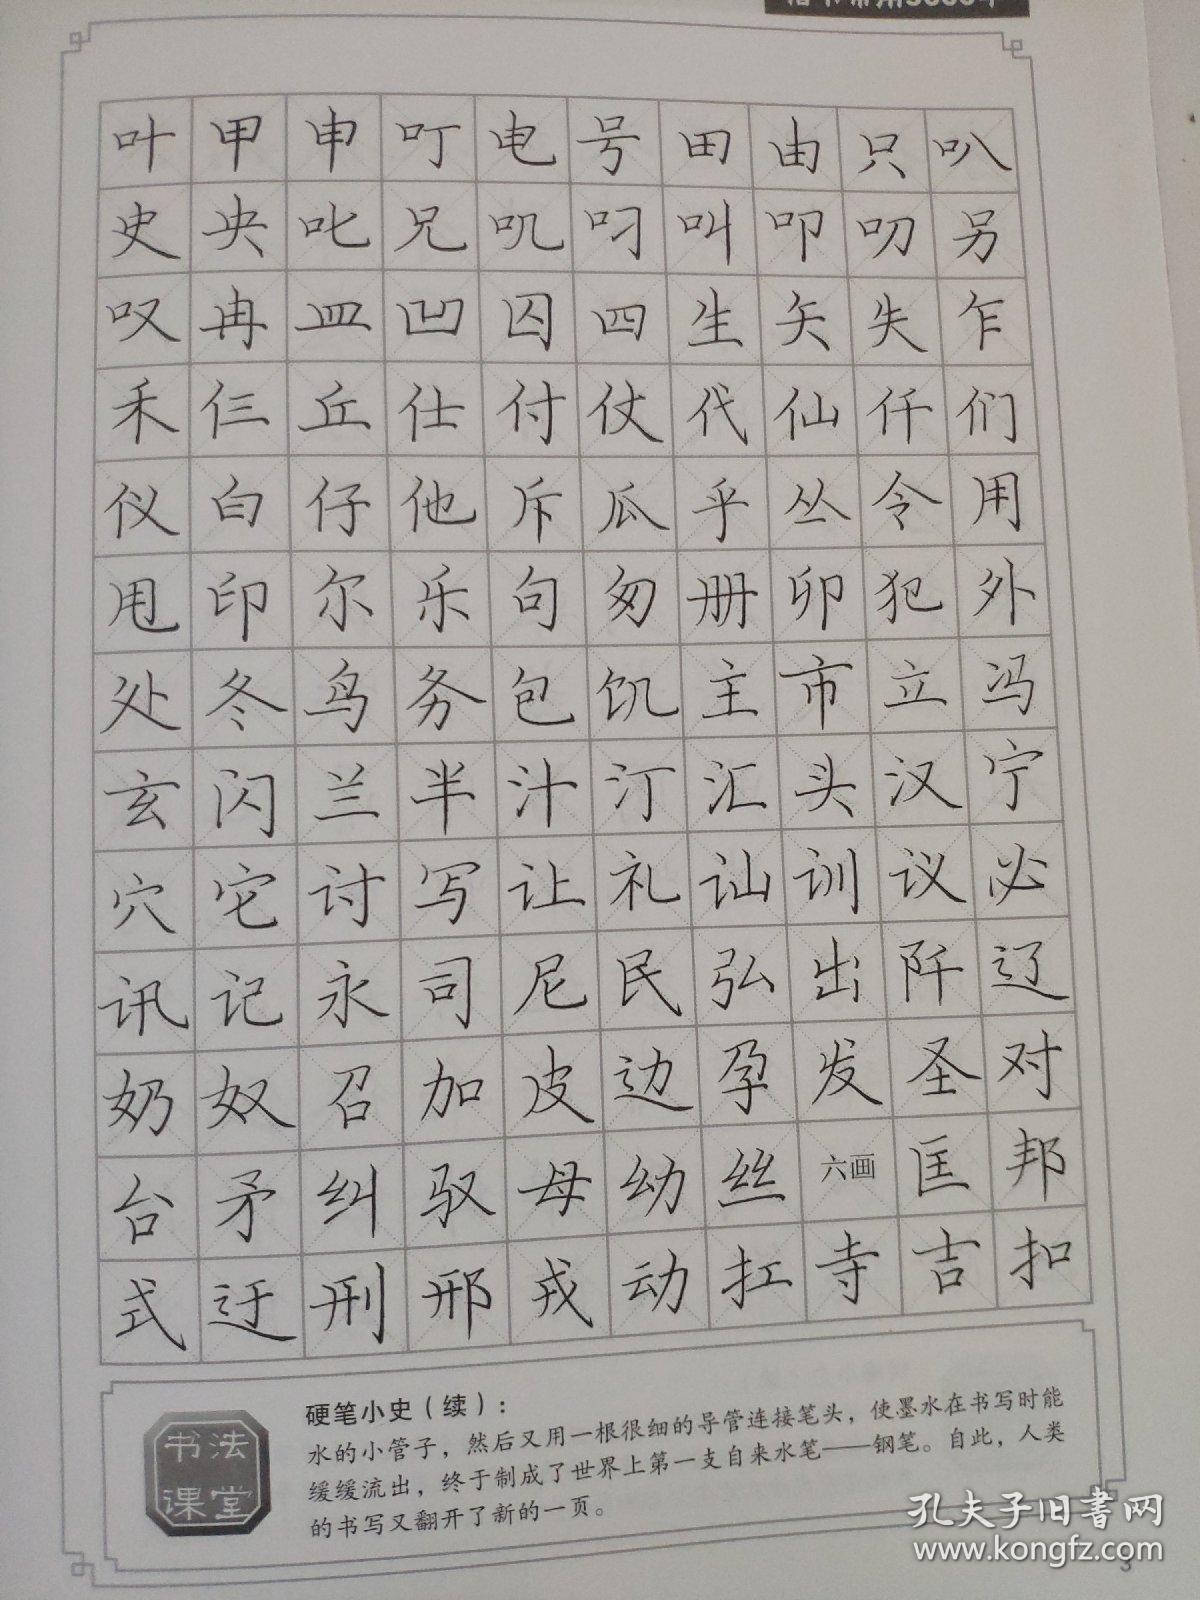 叶甲申叮电号田由只叭
史央叱兄叽叼叫叩叨另
叹冉皿凹囚四生矢失乍
禾仨丘仕付仗代仙仟们
仪白仔他斥瓜乎丛令用
甩印尔乐句匆册卯犯外
处冬鸟务包饥主市立冯
玄闪兰半汁汀汇头汉宁
穴它讨写让礼讪训议必
讯记永司尼民弘出阡辽
奶奴召加皮边孕发圣对
台矛纠驭母幼丝六画匡邦
式迂刑邢戎动扛寺吉扣
书法
课堂
硬笔小史（续）：
水的小管子，然后又用一根很细的导管连接笔头，使墨水在书写时能
缓缓流出，终于制成了世界上第一支自来水笔——钢笔。自此，人类
的书写又翻开了新的一页。
孔夫子旧书网
www.kongfz.com
3